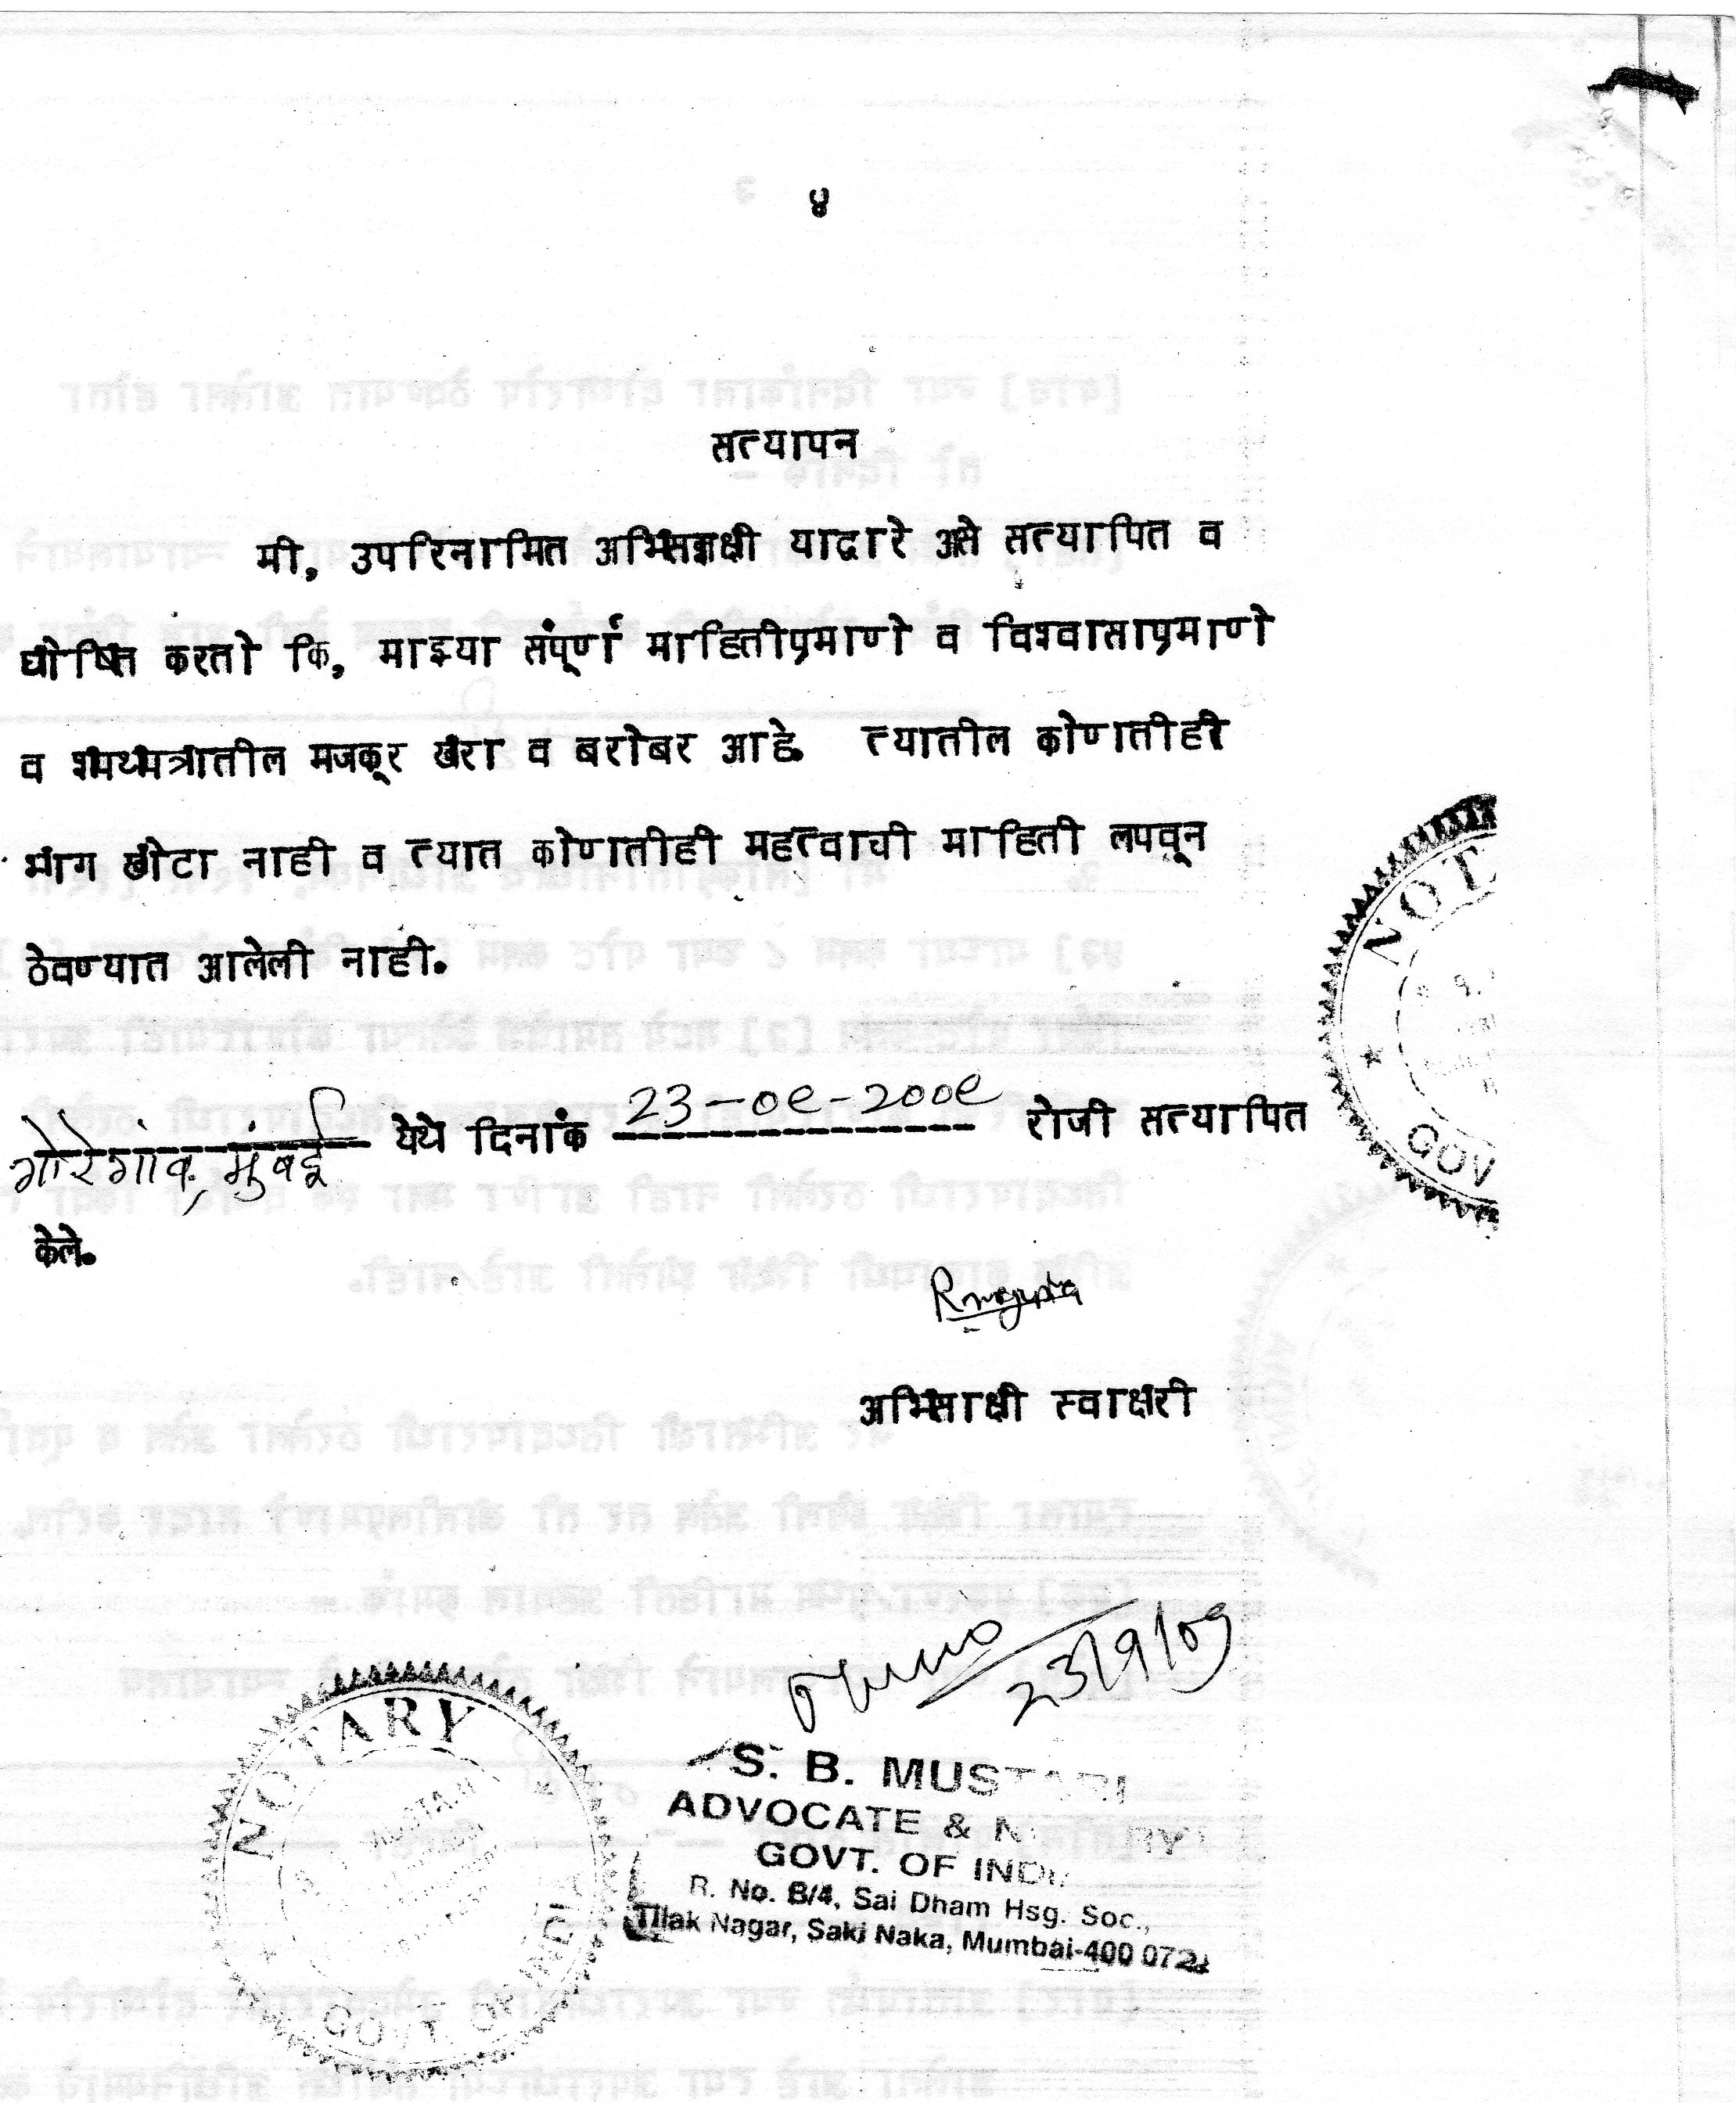 ४
सत्यापन
मी, उपरिनामित अभिसाक्षी याद्वारे असे सत्यापित व
घोषित करतो कि, माझ्या संपूर्ण माहितीप्रमाणे व विश्वासाप्रमाणे
व शपथपत्रातील मजकूर खरा व बरोबर आहे. त्यातील कोणतीही
भाग खोटा नाही व त्यात कोणतीही महत्वाची माहिती लपवून
ठेवण्यात आलेली नाही.
गोरेगांव, मुंबई येथे दिनांक 23-०९-२००९ रोजी सत्यापित
केले.
अभिसाक्षी स्वाक्षरी
23/9/09
S. B. MUSTARI
ADVOCATE & NOTARY
GOVT. OF INDIA
R. No. B/4, Sai Dham Hsg. Soc.,
Tilak Nagar, Saki Naka, Mumbai-400 072.
NOTARY
GOVT. OF INDIA
NOT
GOV